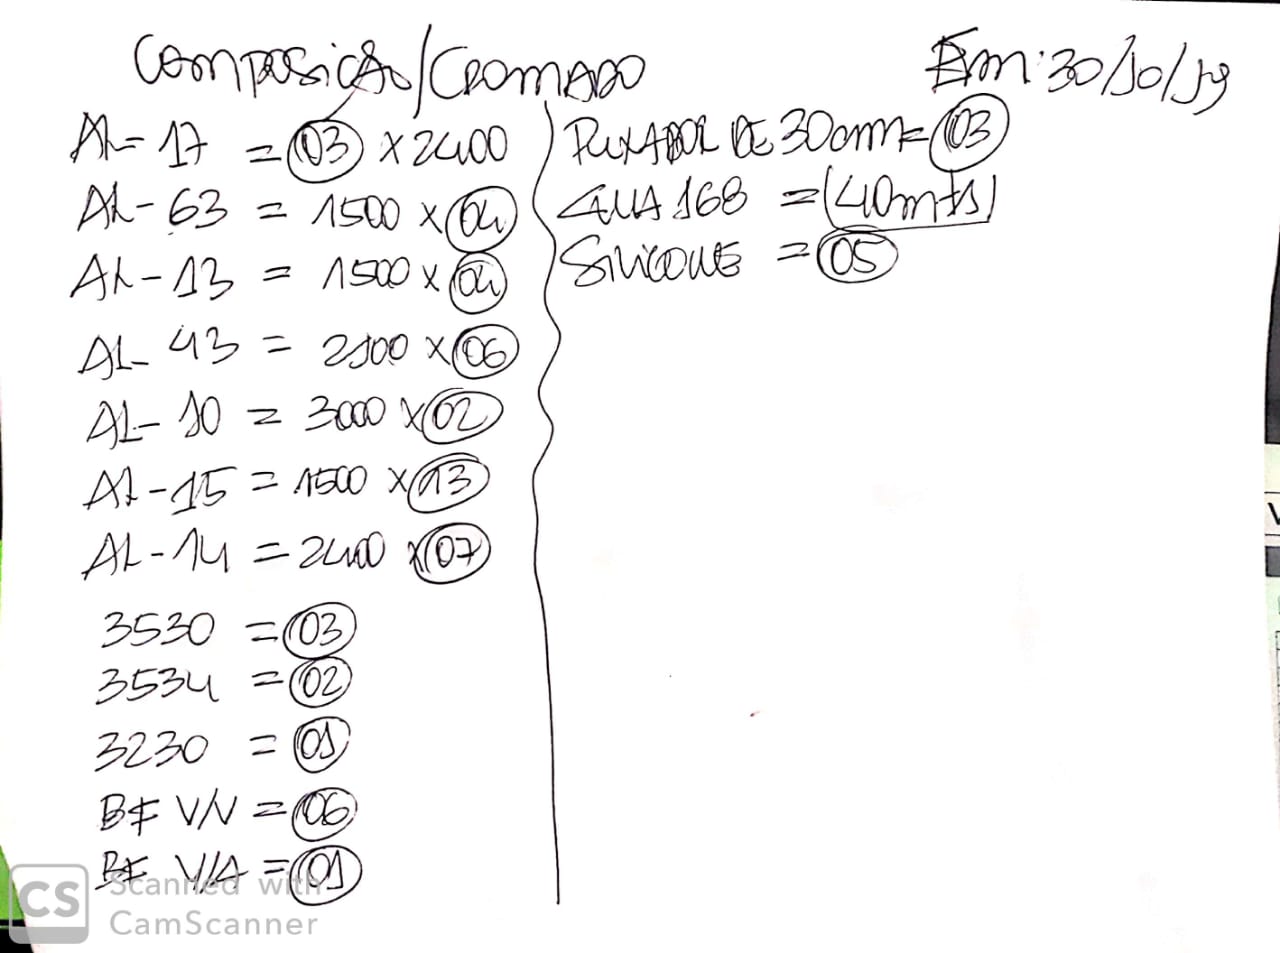 Composição/Cromado
Em: 30/10/19
AL-17 = 03 x 2400
AL-63 = 1500 x 04
AL-13 = 1500 x 04
AL-43 = 2100 x 06
AL-10 = 3000 x 02
AL-15 = 1500 x 13
AL-14 = 2400 x 07
3530 = 03
3534 = 02
3230 = 01
BF V/V = 06
BF V/A = 01
PUXADOR DE 30cm = 03
GUA 168 = (40mts)
Silicone = 05
CS Scanned with
CamScanner